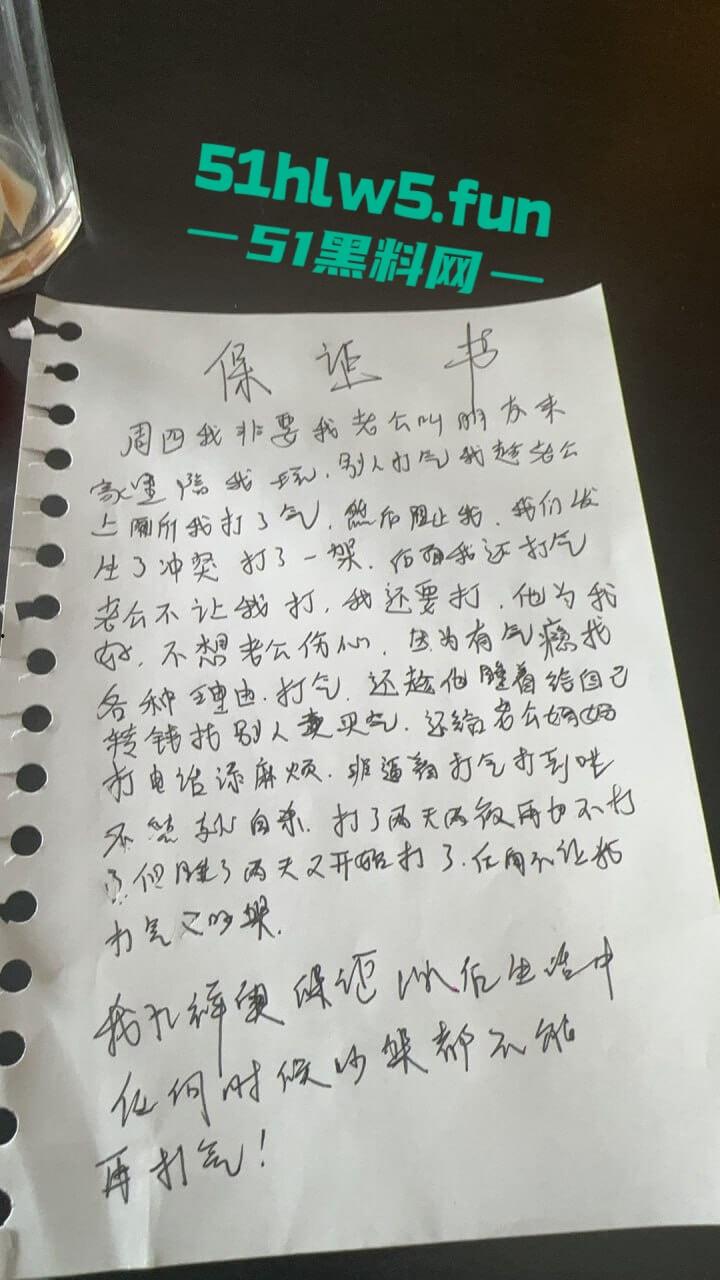 51hlw5.fun
51黑料网
保证书
周四我非要我老公叫朋友来
家里陪我玩，别人打气我趁老公
上厕所我打了气，然后阻止我，我们发
生了冲突 打了一架，后面我还打气
老公不让我打，我还要打，他为我
好，不想老公伤心，因为有气瘾找
各种理由.打气，还趁他睡着给自己
转钱找别人买气，还给老公妈妈
打电话添麻烦，非逼着打气打到
自杀，打了两天两夜再也不打
了，但睡了两天又开始打了，不让我
打气又吵架.
我 保证以后生活中
任何时候吵架都不能
再打气！